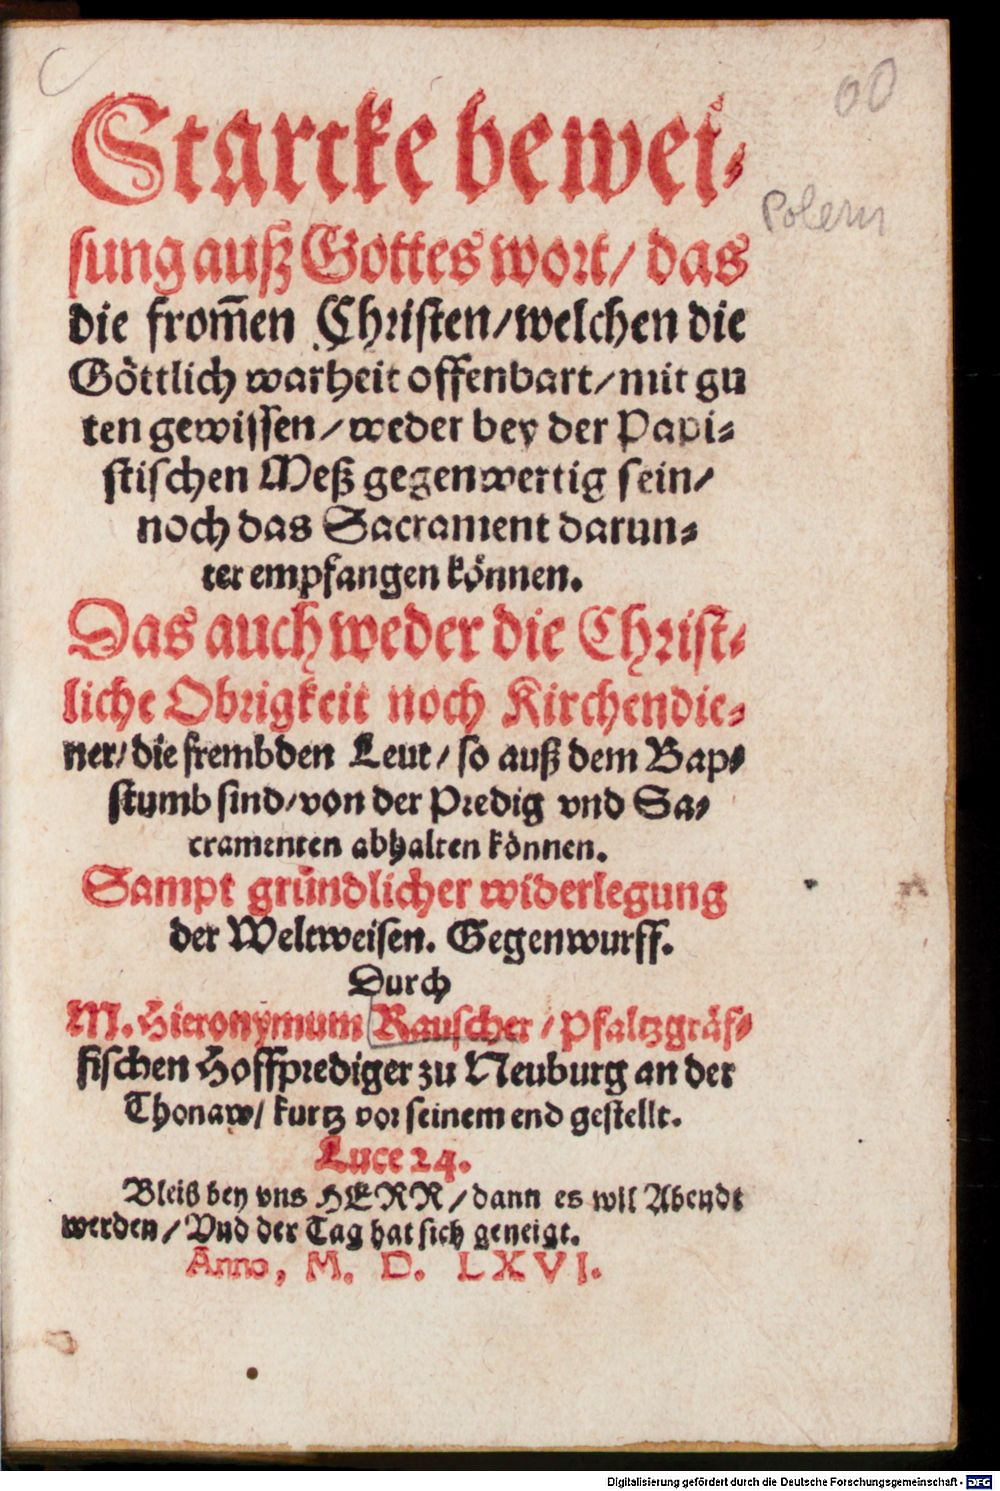 Starcke bewei⸗
Polem
sung auß Gottes wort/ das
die from̅en Christen/welchen die
Göttlich warheit offenbart/mit gu
ten gewissen/weder bey der Papi⸗
stischen Meß gegenwertig sein/
noch das Sacrament darun⸗
ter empfangen können.
Das auch weder die Christ⸗
liche Obrigkeit noch Kirchendie⸗
ner/die frembden Leut/so auß dem Bap⸗
stumb sind/von der Predig vnd Sa⸗
cramenten abhalten können.
Sampt gründlicher widerlegung
der Weltweisen. Gegenwurff.
Durch
M. Hieronymum Rauscher/Pfaltzgräf⸗
fischen Hoffprediger zu Neuburg an der
Thonaw/ kurtz vor seinem end gestellt.
Luce 24.
Bleib bey vns HERR/dann es wil Abendt
werden/Vnd der Tag hat sich geneigt.
Anno, M. D. LXVI.
Digitalisierung gefördert durch die Deutsche Forschungsgemeinschaft - DFG